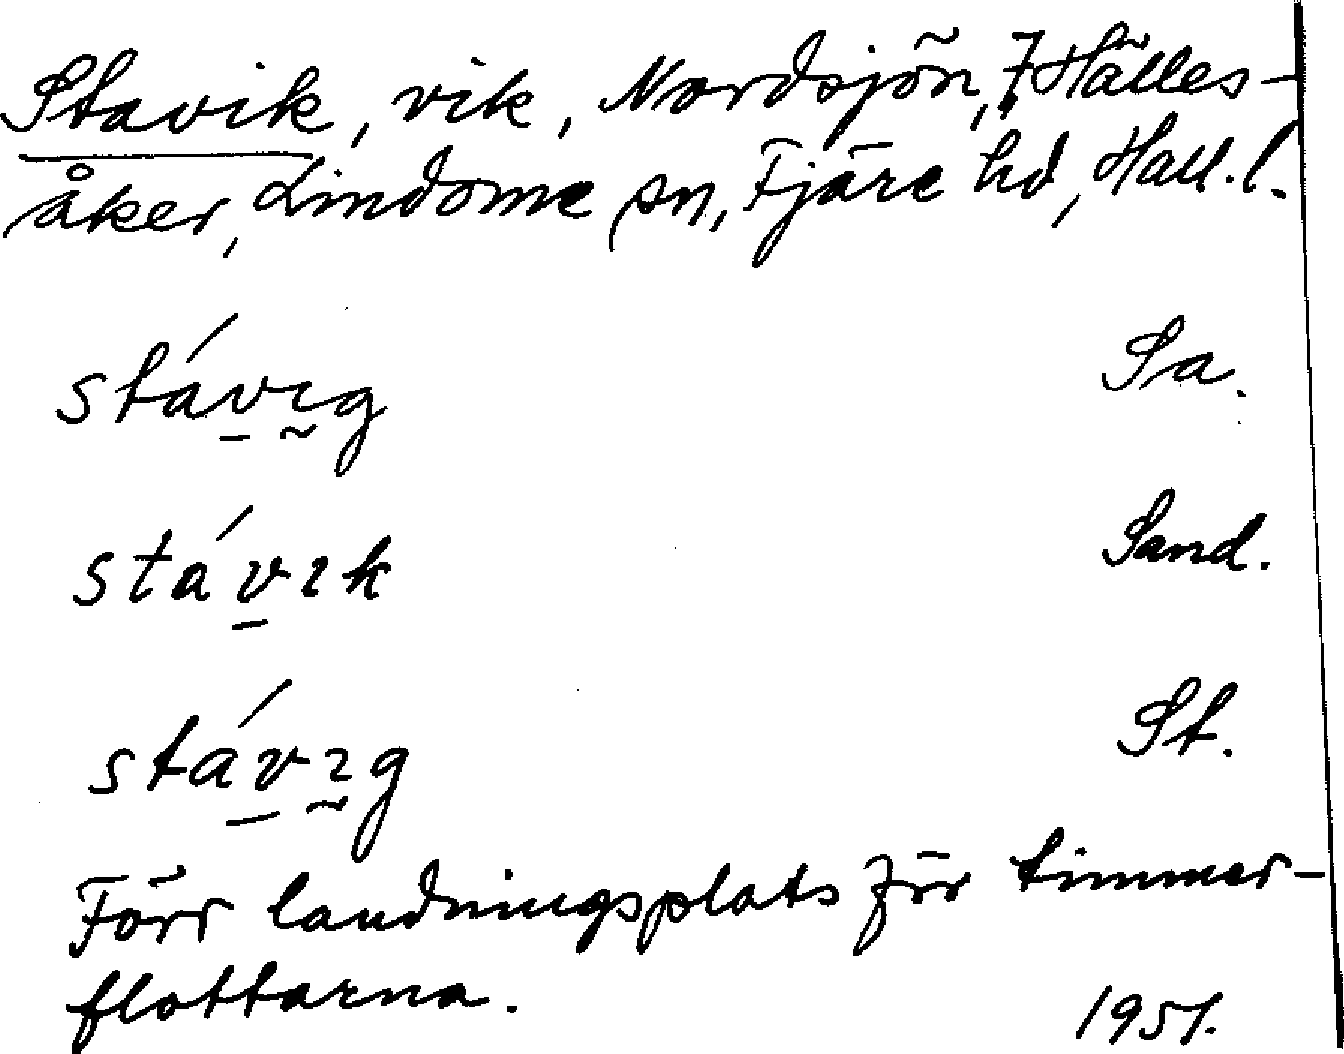 Stavik, vik, Nordsjön, Hälles-
åker, Lindome sn, Fjäre hd, Hall. l.
stávıg Sa.
stávık Sand.
stávıg St.
Förr landningsplats för timmer-
flottarna.
1951.